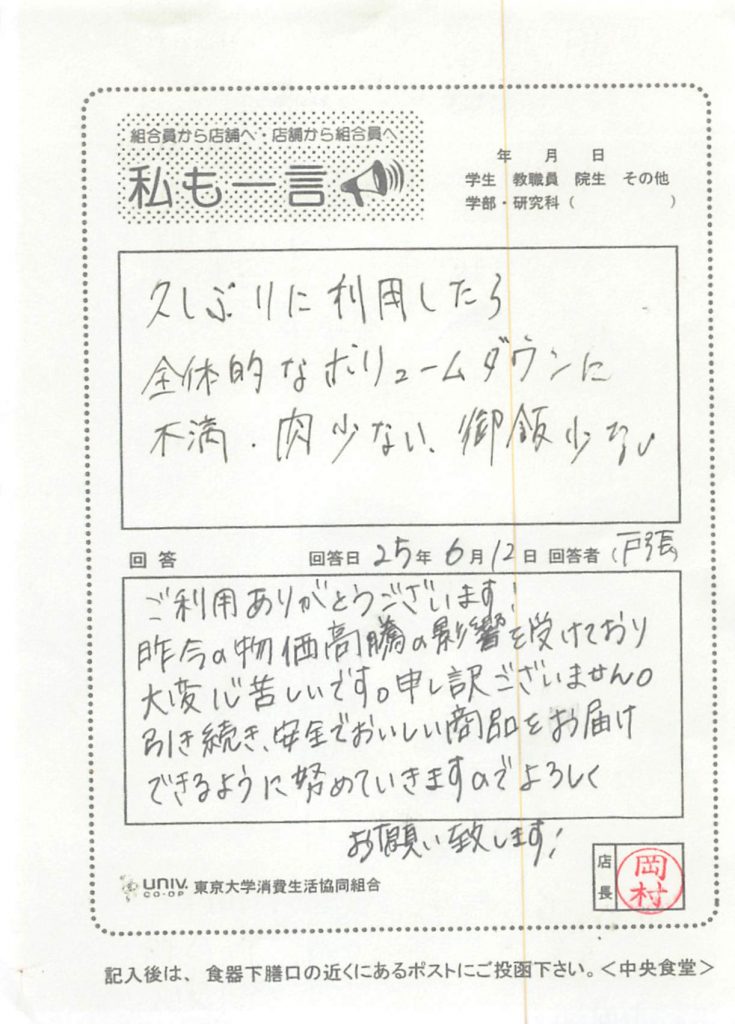 組合員から店舗へ・店舗から組合員へ
私も一言
年 月 日
学生 教職員 院生 その他
学部・研究科（ ）
久しぶりに利用したら
全体的なボリュームダウンに
不満．肉少ない、御飯少ない
回答 回答日 25年 6月12日 回答者（戸張）
ご利用ありがとうございます！
昨今の物価高騰の影響を受けており
大変心苦しいです。申し訳ございません。
引き続き、安全でおいしい商品をお届け
できるように努めていきますのでよろしく
お願い致します！
UNIV. CO-OP 東京大学消費生活協同組合
店長 岡村
記入後は、食器下膳口の近くにあるポストにご投函下さい。＜中央食堂＞